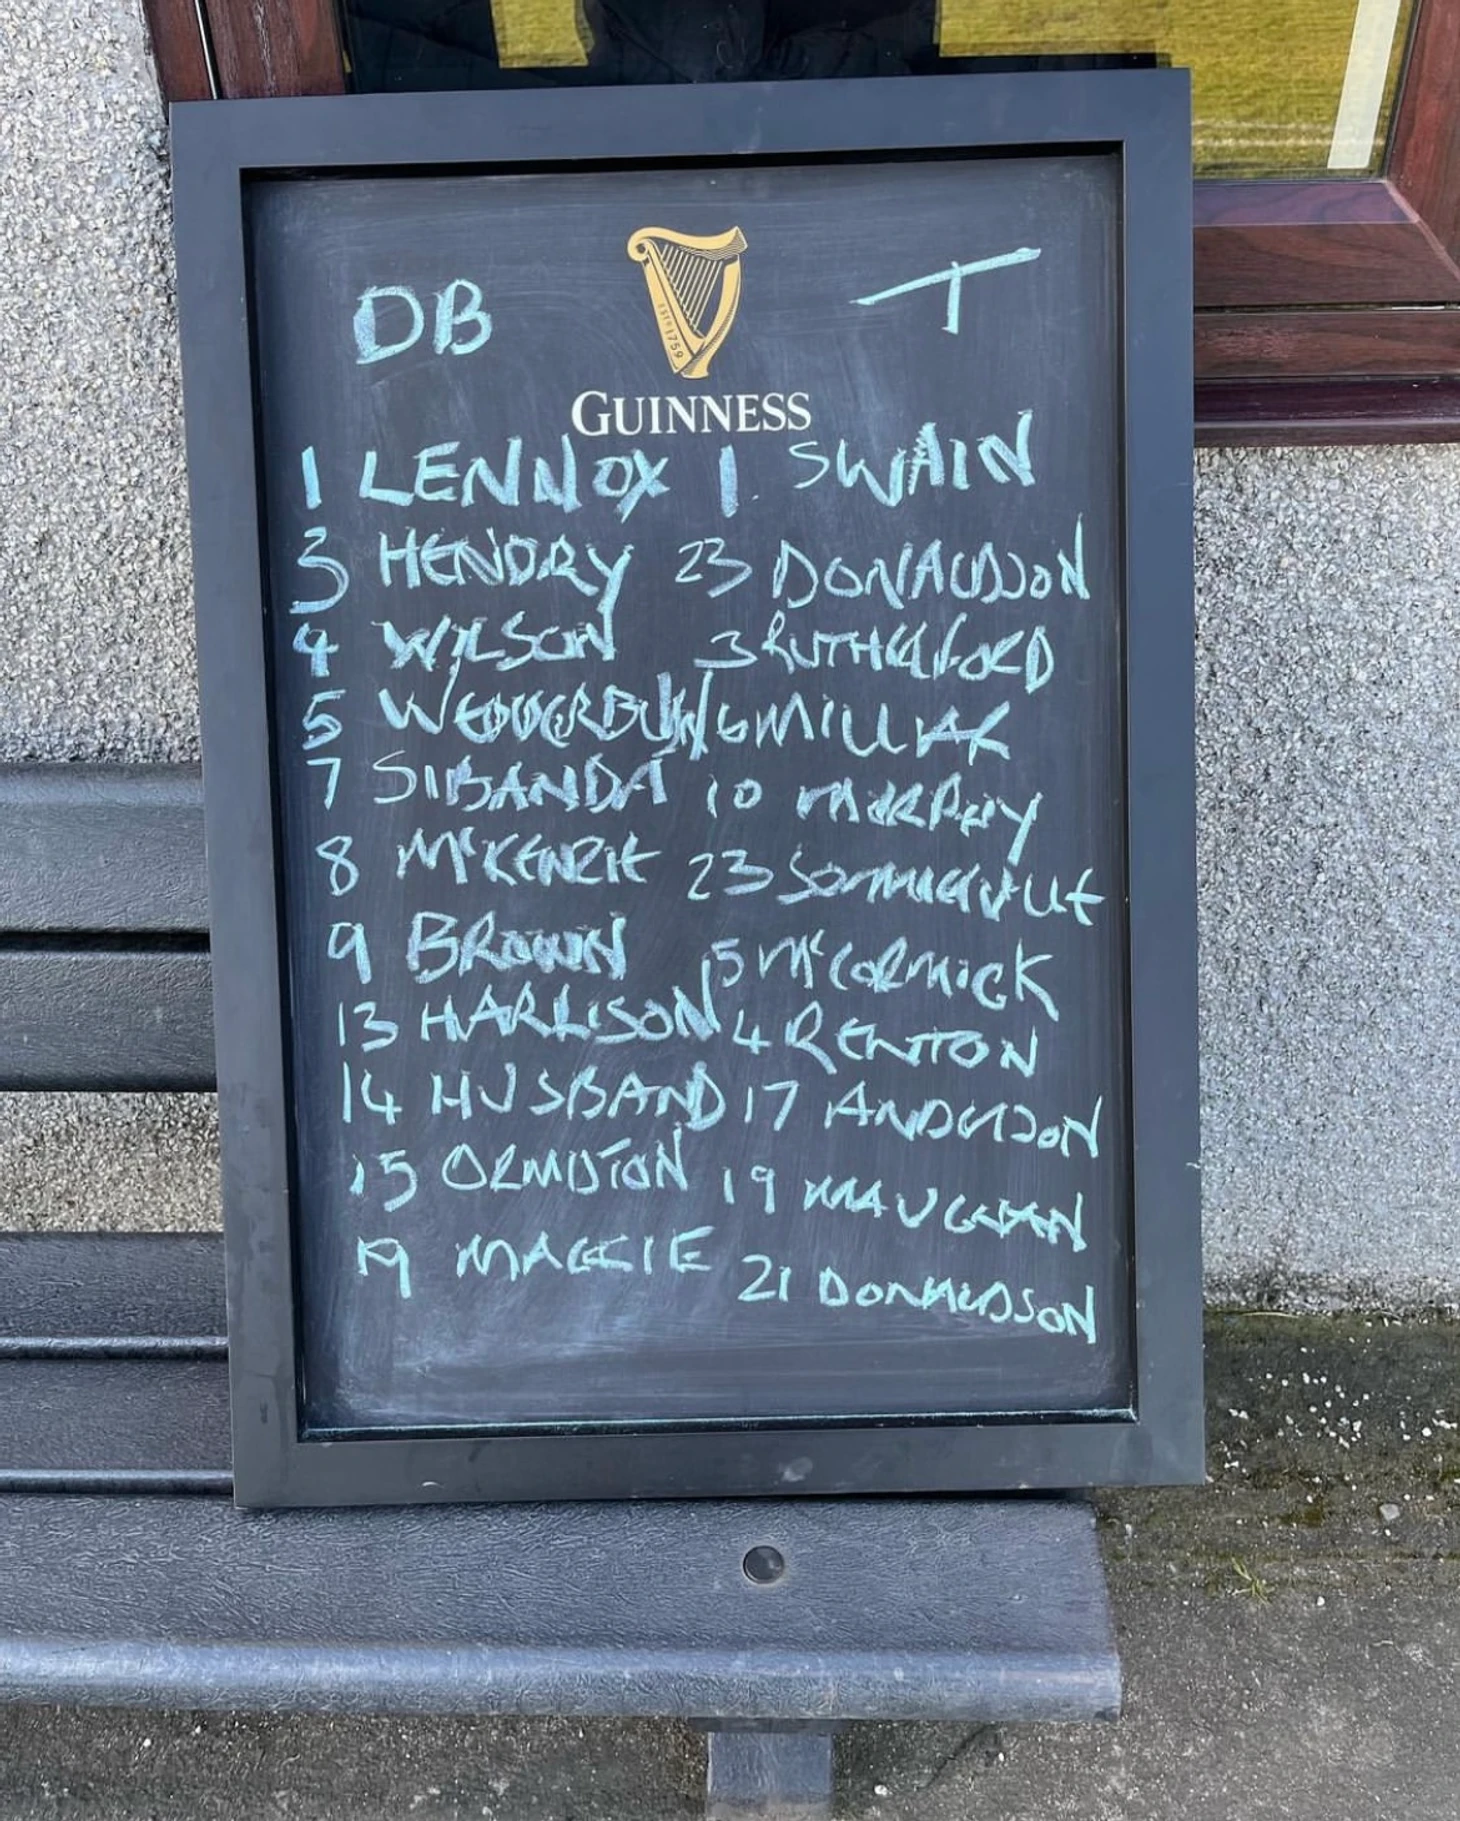 DB T
EST D 1759
GUINNESS
1 LENNOX 1. SWAIN
3 HENDRY 23 DONALDSON
4 WILSON 3 RUTHERFORD
5 WEDDERBURN 6 MILLAR
7 SIBANDA 10 MURPHY
8 McKENZIE 23
9 BROWN 15 McCORMICK
13 HARRISON 4 RENTON
14 HUSBAND 17 ANDERSON
15 ORMISTON 19 MAUGHAN
19 MAGGIE 21 DONALDSON